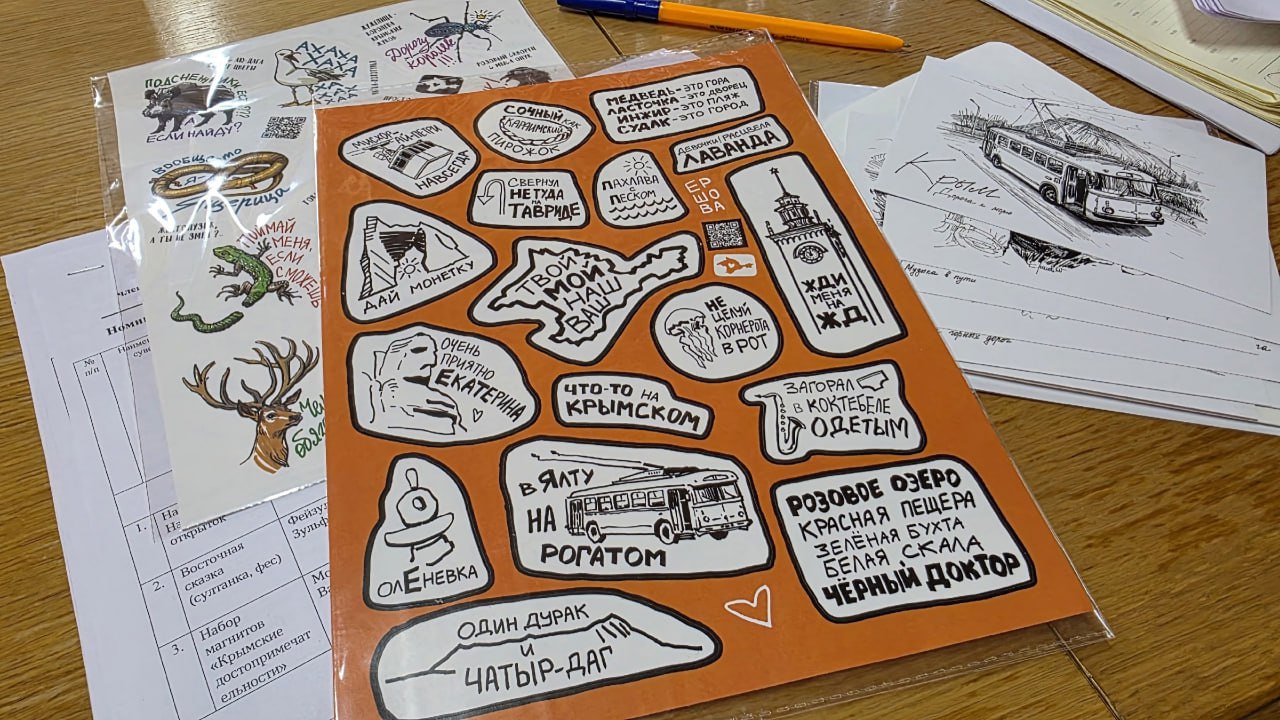 ПОДСНЕЖНИК
ЕСЛИ НАЙДУ?
АХАХА
ХАХА
Дорогу
королеве!!!
ВООБЩЕ-ТО
Я-
ЯЩЕРИЦА
ПОЙМАЙ
МЕНЯ,
ЕСЛИ
СМОЖЕШЬ
МУСКОР
НАВСЕГДА
СОЧНЫЙ КАК
КАРАИМСКИЙ
ПИРОЖОК
МЕДВЕДЬ - ЭТО ГОРА
ЛАСТОЧКА - ЭТО ДВОРЕЦ
ИНЖИР - ЭТО ПЛЯЖ
СУДАК - ЭТО ГОРОД
ДЕВОЧКИ! РАСЦВЕЛА
ЛАВАНДА
СВЕРНУЛ
НЕ ТУДА
НА
ТАВРИДЕ
ПАХЛАВА
С
ПЕСКОМ
ЕР
ШО
ВА
ДАЙ МОНЕТКУ
ТВОЙ
МОЙ
НАШ
ВАШ
ЖДИ
МЕНЯ
НА
ЖД
НЕ
ЦЕЛУЙ
КОРНЕРОТА
В РОТ
ОЧЕНЬ
ПРИЯТНО
ЕКАТЕРИНА
ЧТО-ТО НА
КРЫМСКОМ
ЗАГОРАЛ
В КОКТЕБЕЛЕ
ОДЕТЫМ
ОЛЕНЕВКА
В ЯЛТУ
НА
РОГАТОМ
РОЗОВОЕ ОЗЕРО
КРАСНАЯ ПЕЩЕРА
ЗЕЛЁНАЯ БУХТА
БЕЛАЯ СКАЛА
ЧЁРНЫЙ ДОКТОР
ОДИН ДУРАК
И
ЧАТЫР-ДАГ
Крым
Дорога к морю
Музыка в пути
горных дорог
№
п/п
1.
открыток
2. Восточная
сказка
(султанка, фес)
3. Набор
магнитов
«Крымские
достопримечат
ельности»